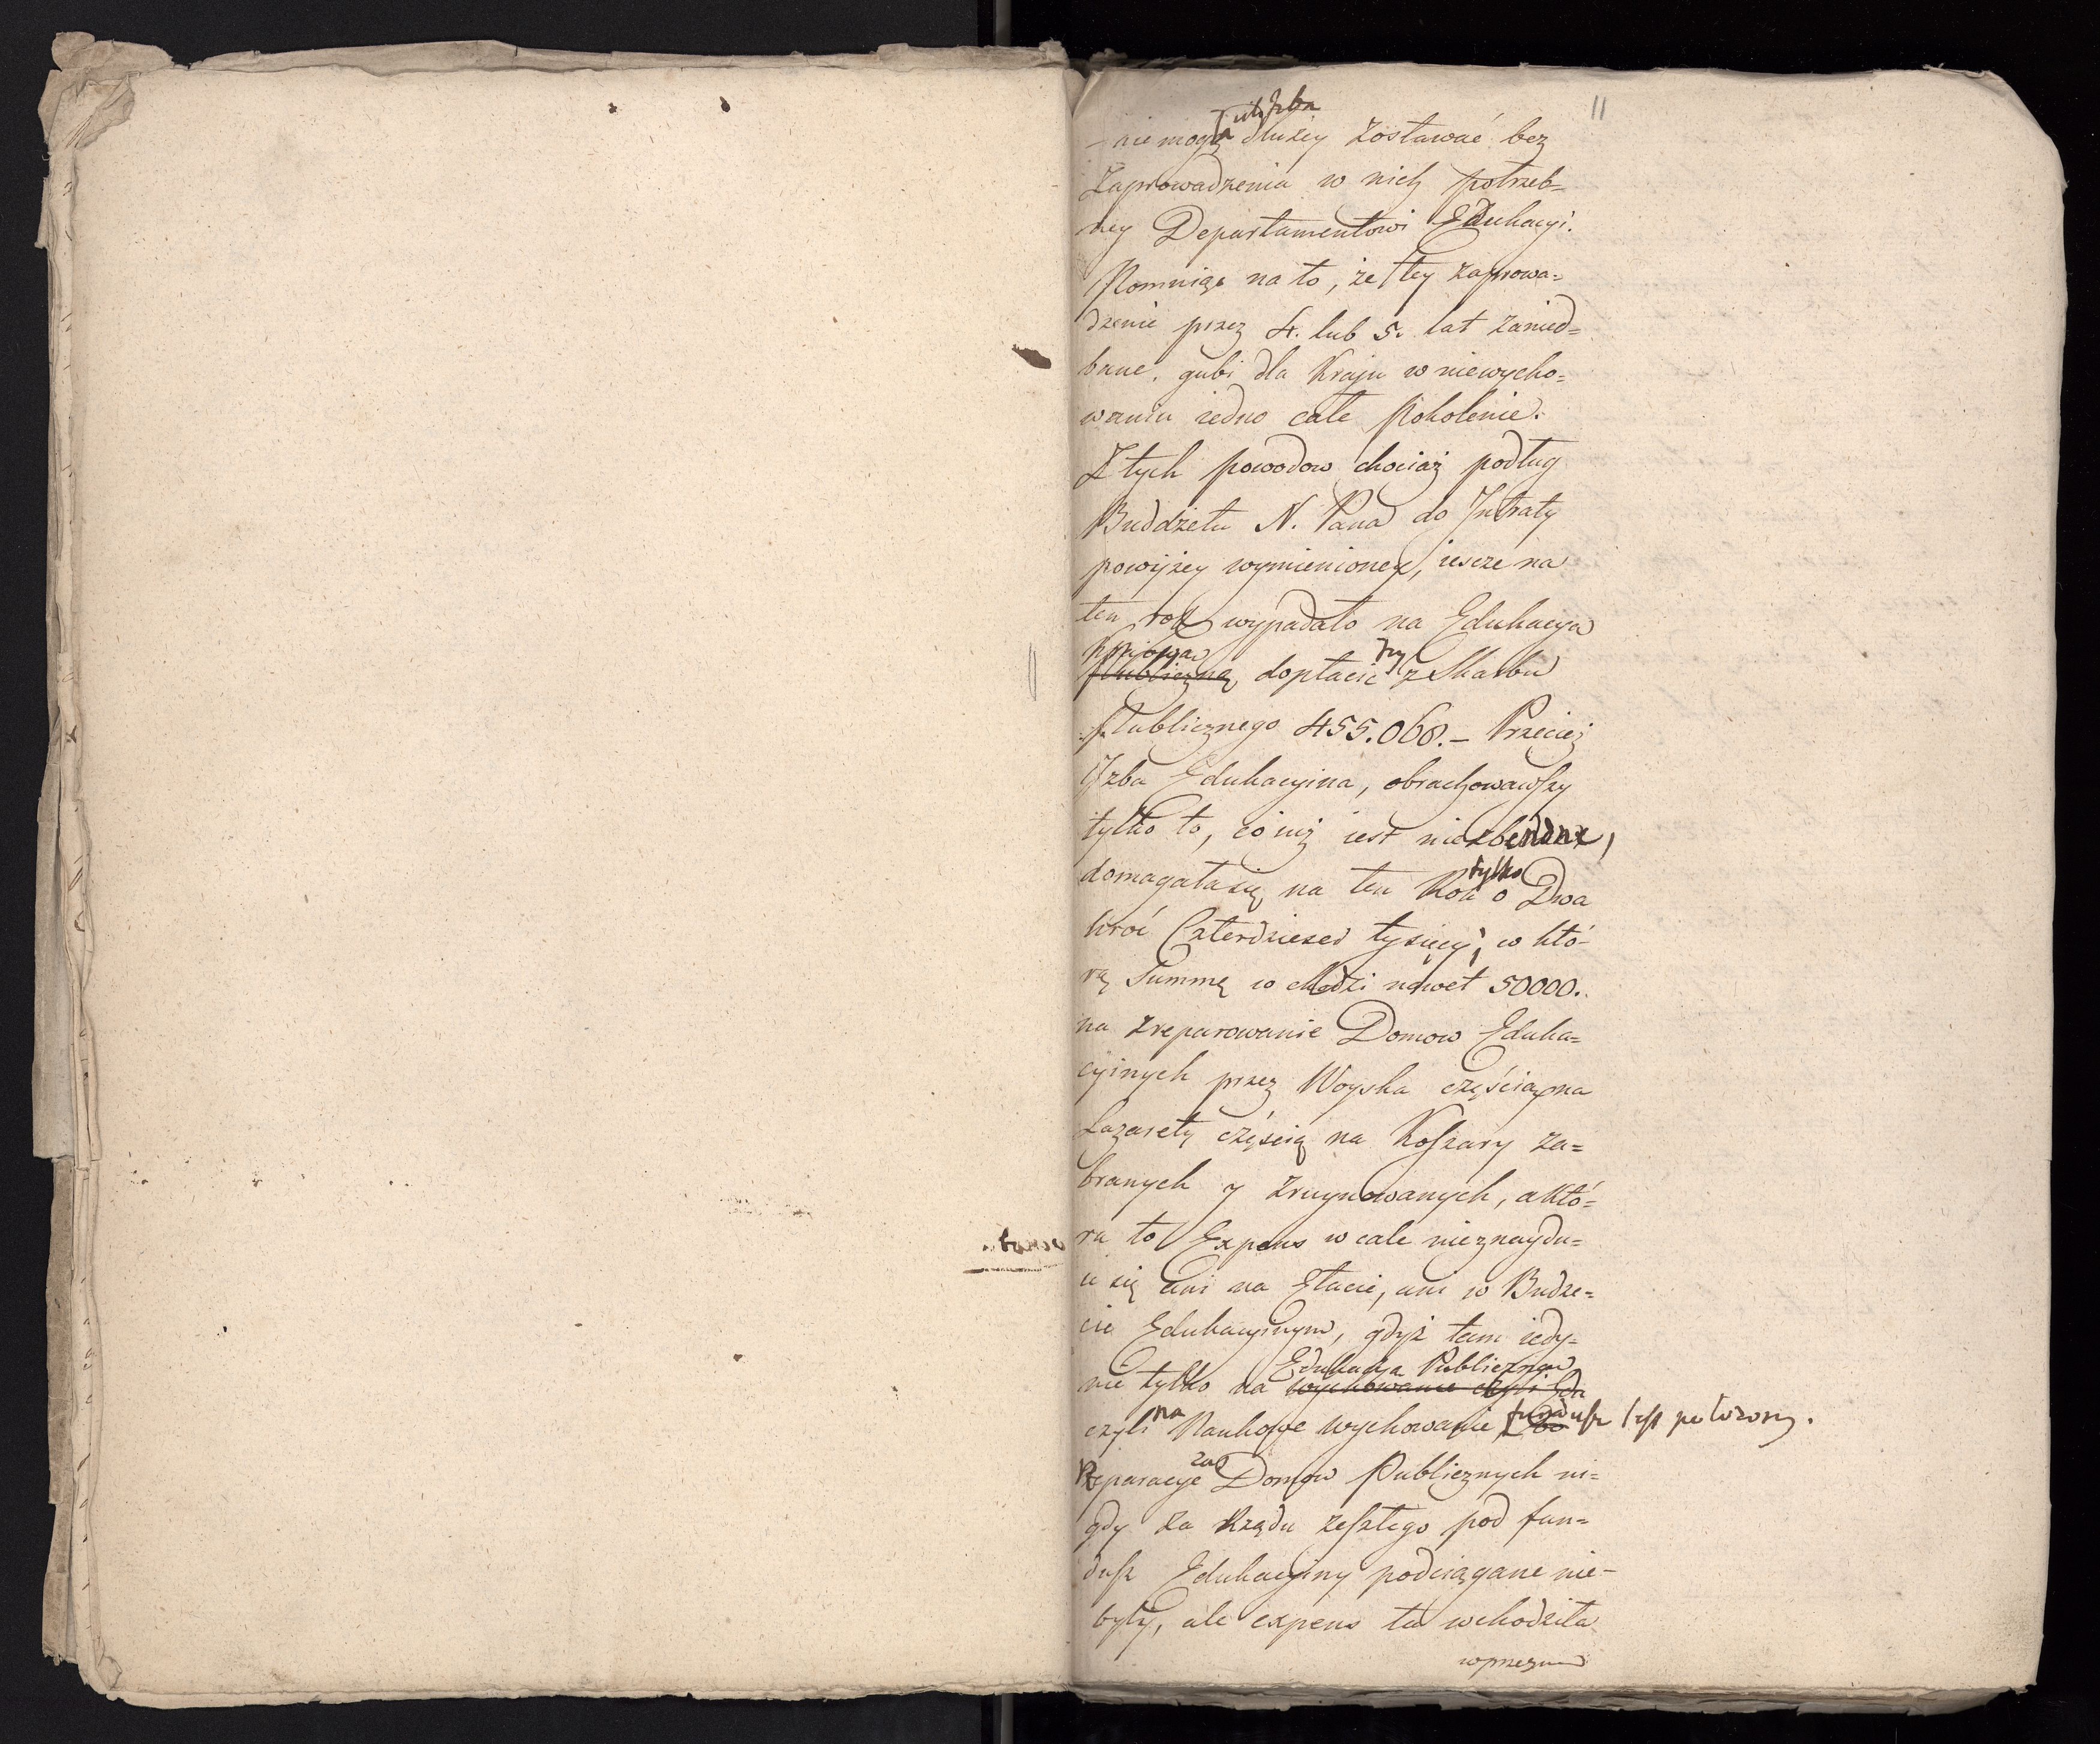 11
niemogą dłużey zostawać bez
Zaprowadzenia w nich potrzeb=
ney Departamentowi Edukacyi.
Pomniąc na to, że tey zaprowa=
dzenie przez 4. lub 5. lat zanied=
bane, gubi dla Kraju w niewycho=
waniu iedno całe Pokolenie.
Z tych powodow chociaż podług
Buddżetu N. Pana do Intraty
powyżey wymienioney, ieszcze na
ten rok wypadało na Edukacyą
Publiczną dopłacić z Skarbu
Publicznego 455.068.– Przecież
Izba Edukacyina, obrachowawszy
tylko to, co iuż iest niezbendne,
tylko
domagała się na ten Rok o Dwa
kroć Czterdzieści tysięcy, w któ-
rą Summę wchodzi nawet 50000.
na zreparowanie Domow Eduka=
cyinych przez Woyska częścią na
Lazarety częścią na Koszary za=
branych y zruynowanych, a któ=
ra to Expens wcale nieznaydu=
ie się ani na Etacie, ani w Budże=
cie Edukacyinym, gdyż tam iedy=
Edukacyą Publiczną
nie tylko na wychowanie czyli
czyli na Naukowe wychowanie fundusz iest położony.
Reparacye zaś Domow Publicznych ni=
gdy za Rządu zeszłego pod fun=
dusz Edukacyiny podciągane nie-
były, ale expens ta wchodziła